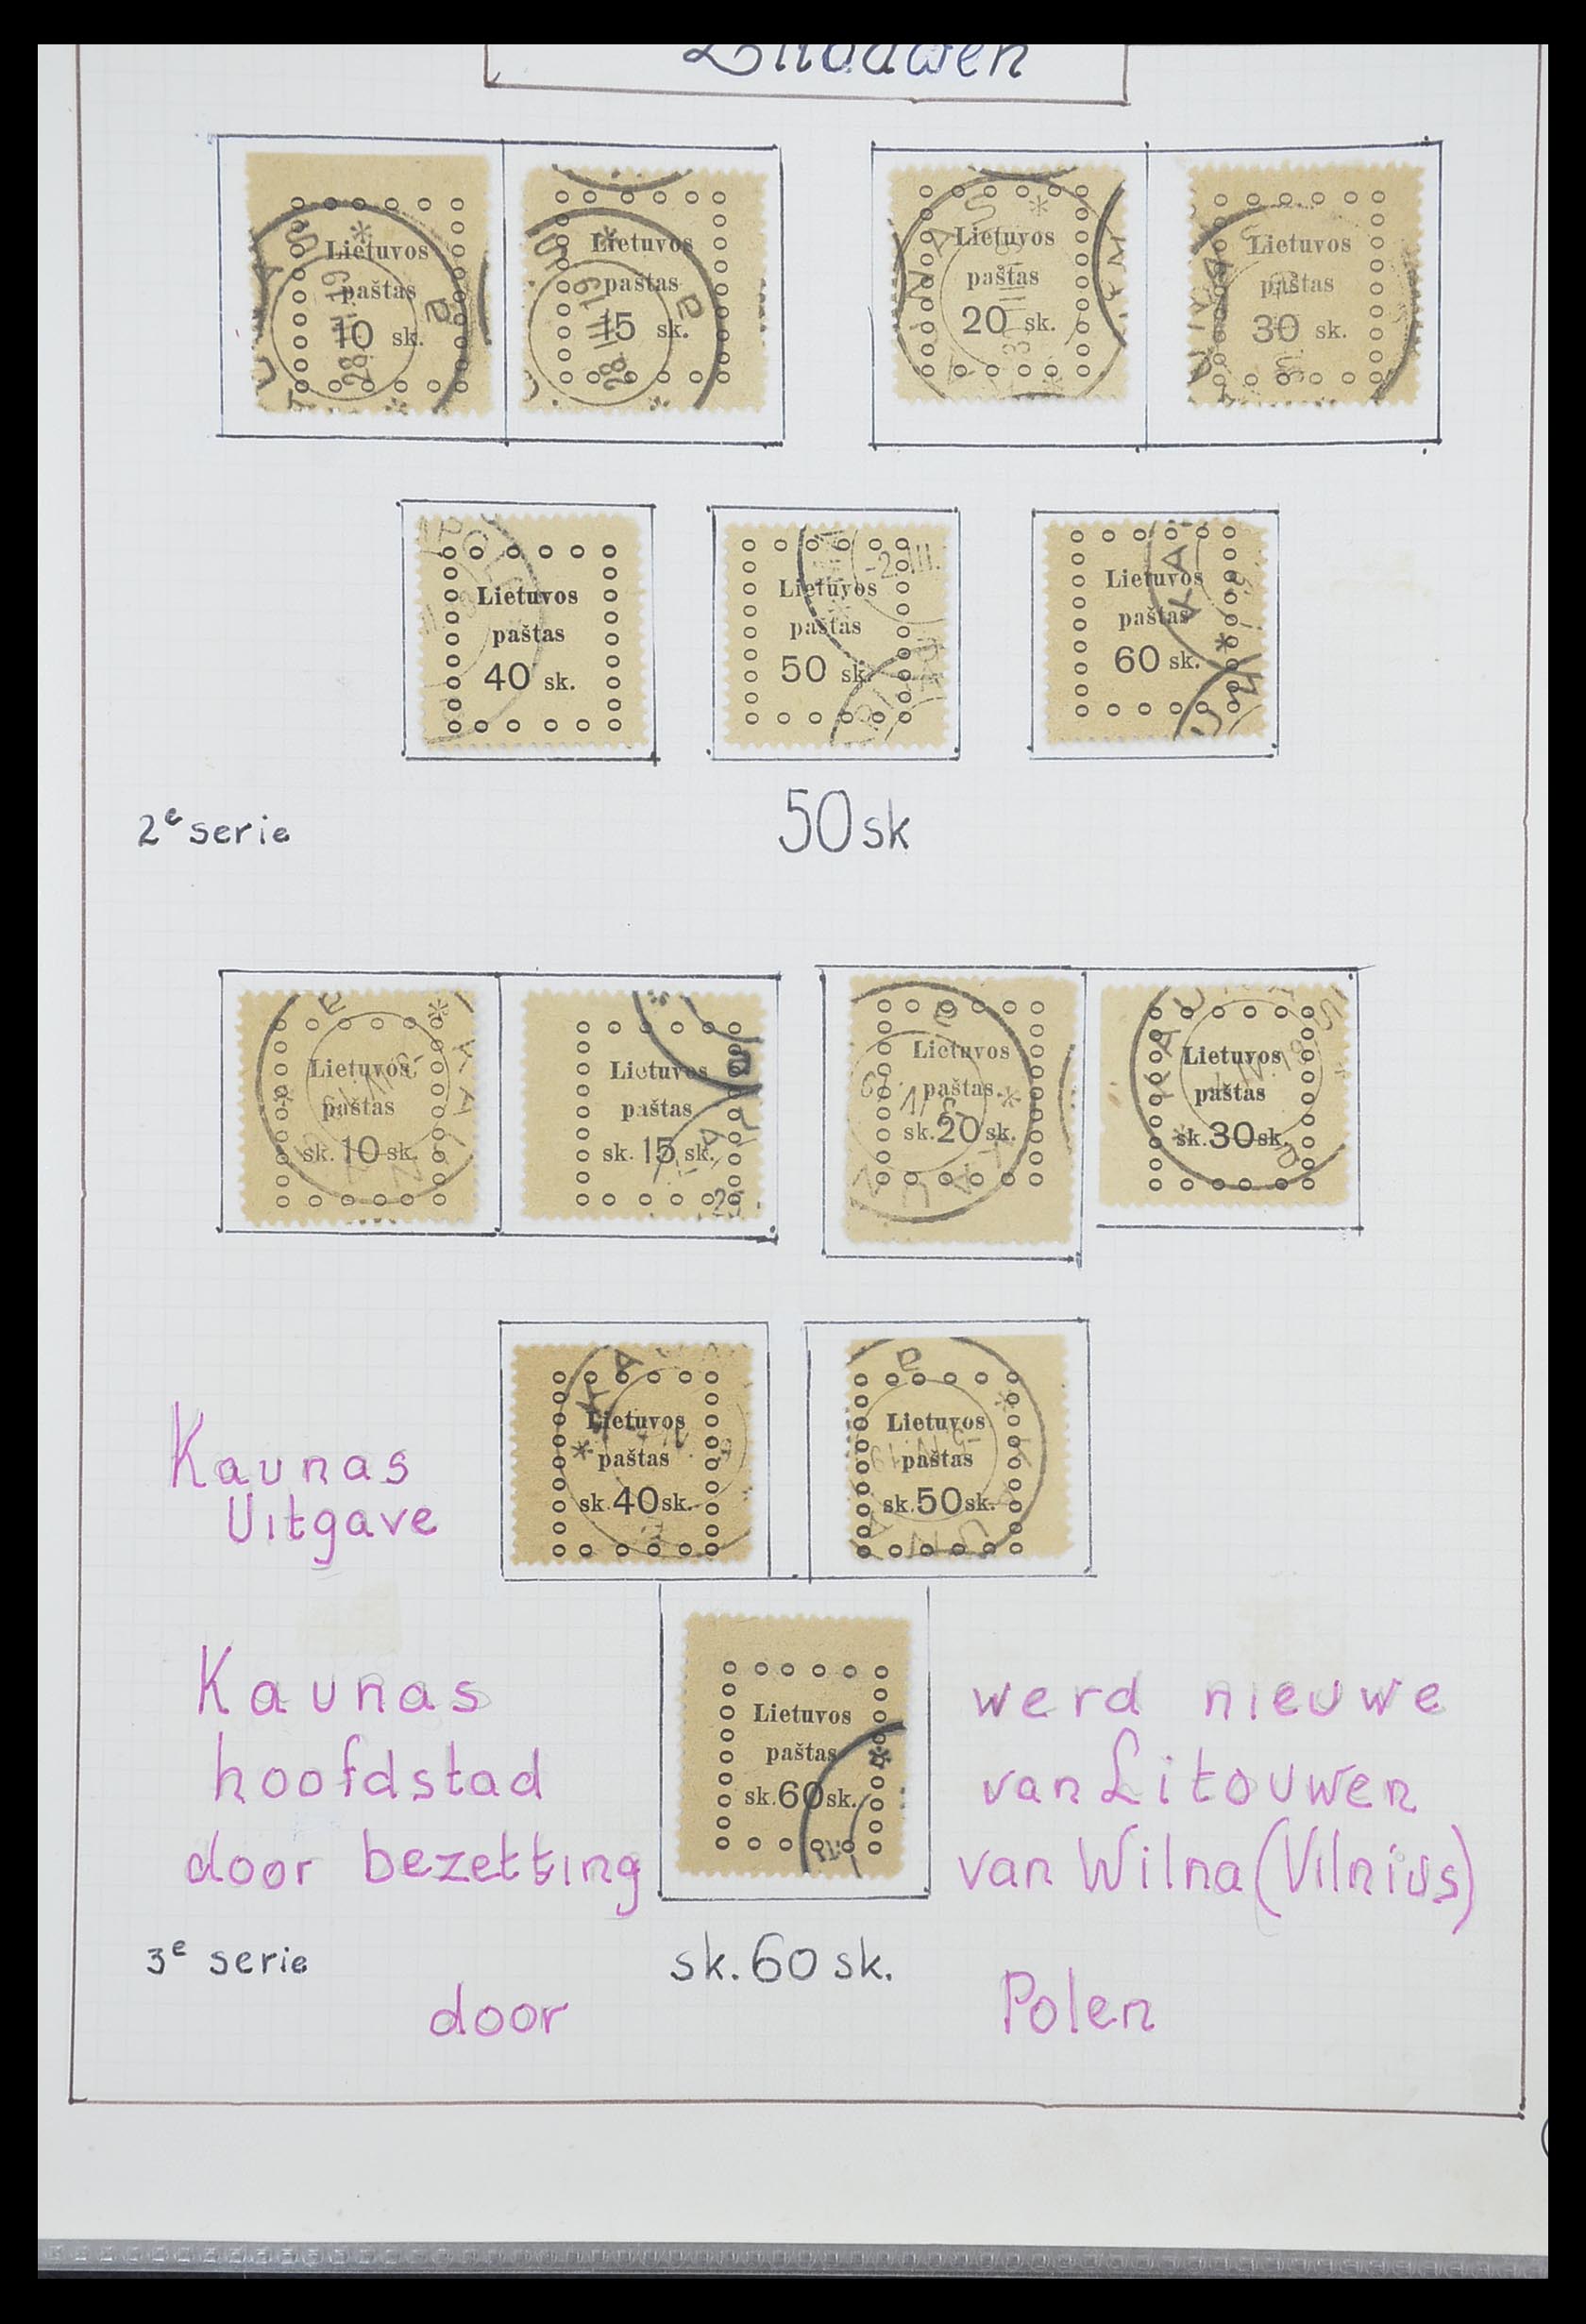 Lietuvos
paštas
10 sk.
28. III. 19
a
Lietuvos
paštas
15 sk.
28. III. 19
a
Lietuvos
paštas
20 sk.
Lietuvos
paštas
30 sk.
Lietuvos
paštas
40 sk.
Lietuvos
paštas
50 sk.
-2. III.
Lietuvos
paštas
60 sk.
2e serie
50 sk
Lietuvos
paštas
sk. 10 sk.
a
Lietuvos
paštas
sk. 15 sk.
Lietuvos
paštas
sk. 20 sk.
a
Lietuvos
paštas
sk. 30 sk.
KAUNAS
Lietuvos
paštas
sk. 40 sk.
Lietuvos
paštas
sk. 50 sk.
a
Kaunas
Uitgave
Lietuvos
paštas
sk. 60 sk.
Kaunas werd nieuwe
hoofdstad van Litouwen
door bezetting van Wilna (Vilnius)
3e serie
sk. 60 sk.
door Polen